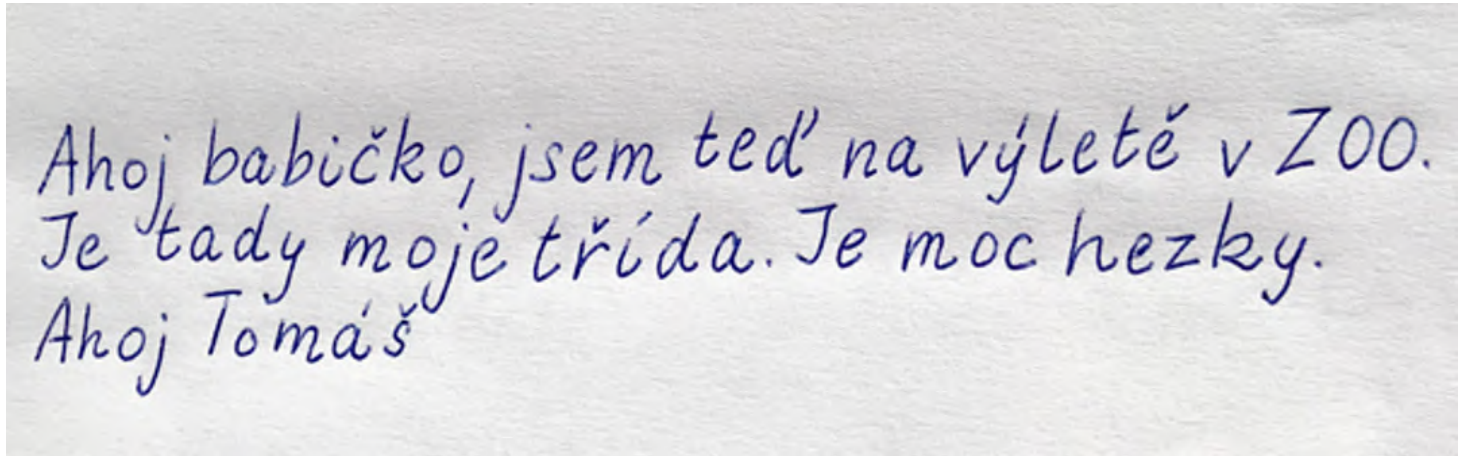 Ahoj babičko, jsem teď na výletě v ZOO.
Je tady moje třída. Je moc hezky.
Ahoj Tomáš